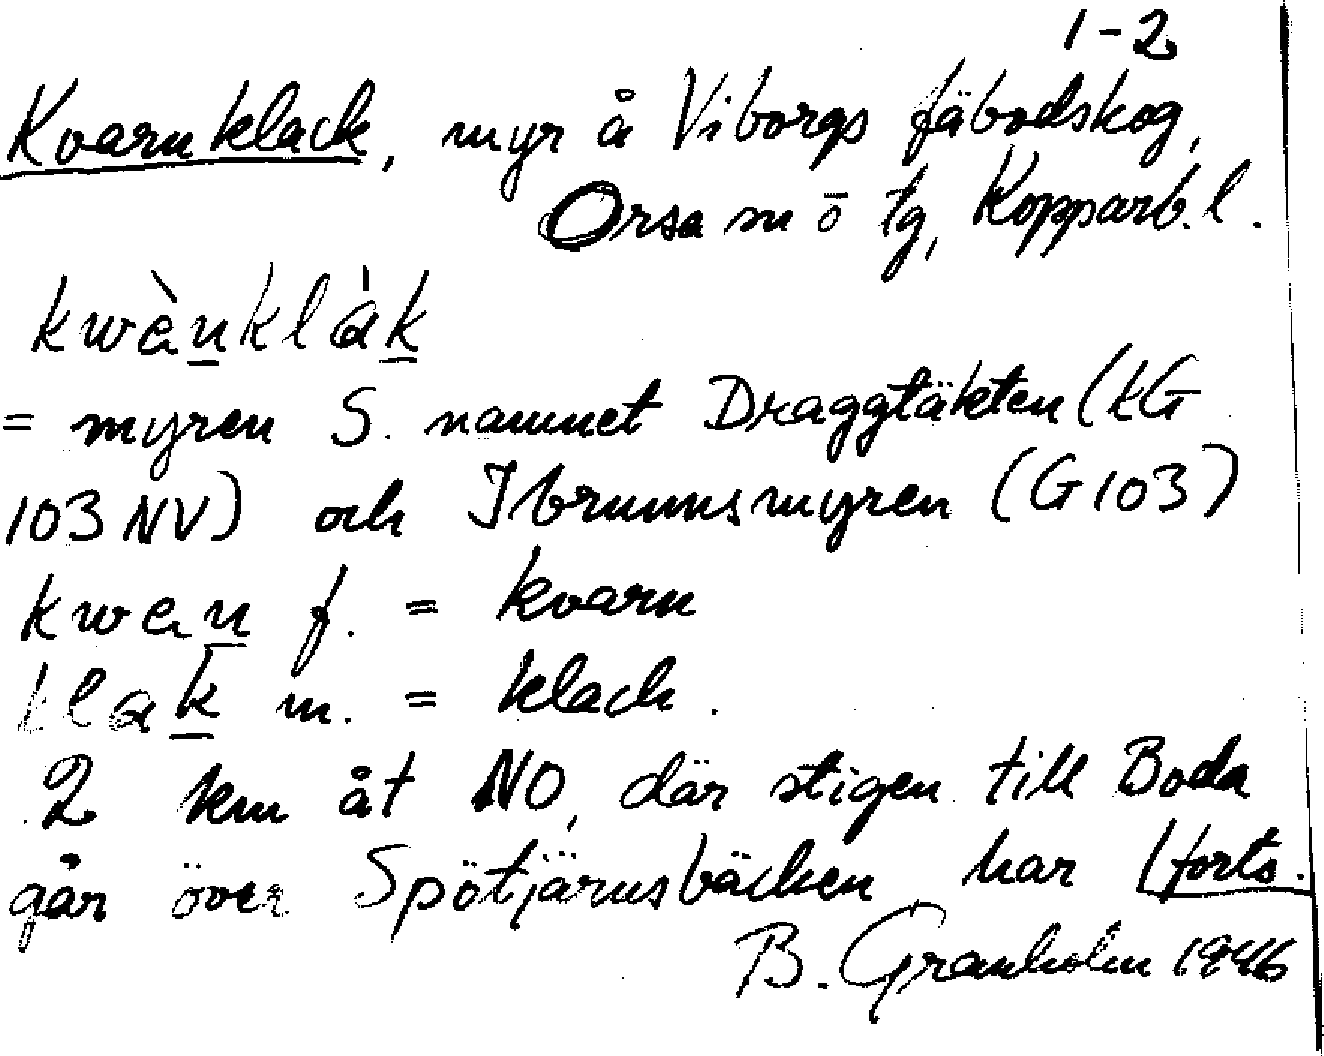 1-2
Kvarnklack, myr å Viborgs fäbodskog,
Orsa m o tg, Kopparb. l.
kwènklàk
= myren S. namnet Draggtäkten (kG
103 NV) och Ibrunnsmyren (G103)
kwen f. = kvarn
klak m. = klack.
2 km åt NO, där stigen till Boda
går över Spötjärnsbäcken, har Forts.
B. Granholm 1946